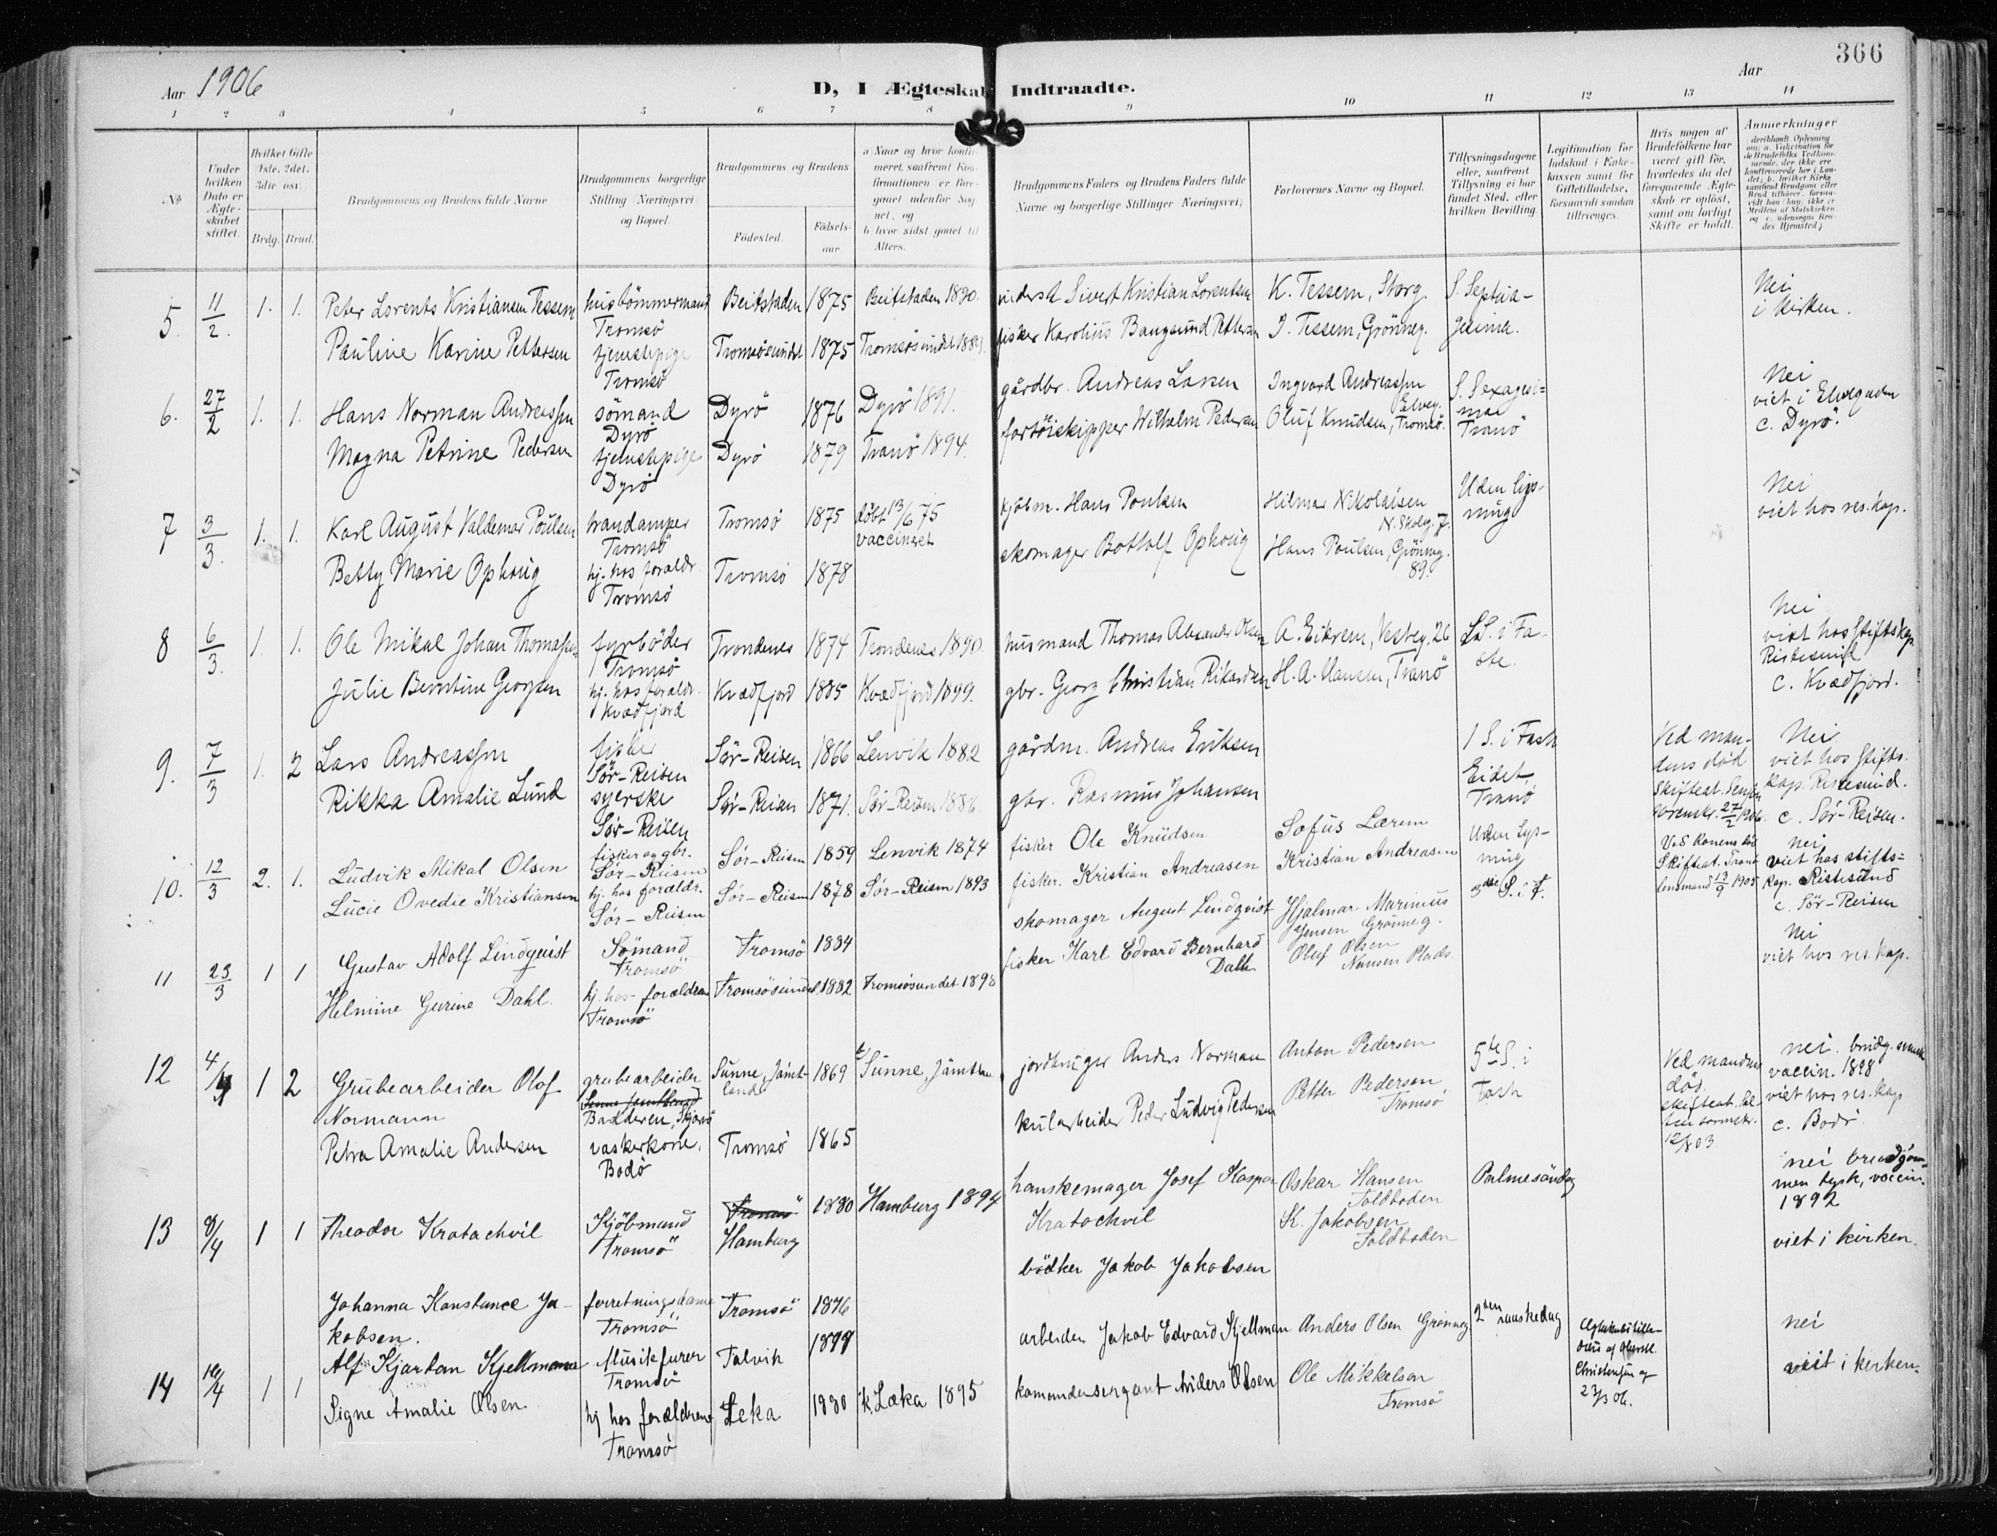 366
Aar 1906
D, I Ægteskab Indtraadte.
Aar
1 2 3 4 5 6 7 8 9 10 11 12 13 14
No.
Under hvilken Dato er Ægteskabet stiftet.
Hvilket Gifte 1ste. 2det. 3die osv.
Brdg. Brud.
Brudgommens og Brudens fulde Navne
Brudgommens borgerlige Stilling Næringsvei og Bopæl.
Brudgommens og Brudens
Fødested.
Fødselsaar.
a) Naar og hvor konfirmeret, saafremt Konfirmationen er foregaaet udenfor Sognet, og
b) hvor sidst gaaet til Alters.
Brudgommens Faders og Brudens Faders fulde Navne og borgerlige Stillinger Næringsvei)
Forlovernes Navne og Bopæl.
Tillysningsdagene eller, saafremt Tillysning ei har fundet Sted, efter hvilken Bevilling.
Legitimation for Indskud i Enkekassen samt for Giftetilladelse, forsaavidt saadan tiltrænges.
Hvis nogen af Brudefolkene har været gift før, hvorledes da det foregaaende Ægteskab er opløst, samt om lovligt Skifte er holdt.
Anmerkninger
5. 11/2. 1. 1. Peter Lorents Kristiansen Tessem hustømmermand Tromsö Beitstaden 1875 Beitstaden 1890. Sivert Kristian Lorentsen K. Tessem, Storg. S. Septua- Nei i kirken.
Pauline Karine Pettersen tjenestepige Tromsö Tromsösundet 1875 Tromsösundet fisker Karolius Bangsund Pettersen J. Tessem, Grönneg. gesima.
6. 27/2 1. 1. Hans Norman Andreassen sömand Dyrö Dyrö 1876 Dyrö 1891. gårdbr. Andreas Larsen Ingvard Andreassen Elveg. S. Sexagesi- Nei viet i Elvegaden
Magna Petrine Pedersen tjenestepige Dyrö Dyrö 1879 Tranö 1894. fartöiskipper Wilhelm Pedersen Oluf Knudsen, Tromsö. mae Tranö c. Dyrö.
7 3/3. 1. 1. Karl August Valdemar Poulsen trandamper Tromsö Tromsö 1875 döbt 13/6 75 vaccineret kjöbm. Hans Poulsen Hilmar Nikolaisen N. Skolg. 7. Uden lysning Nei viet hos res. kap.
Betty Marie Ophoug hj. hos forældr. Tromsö Tromsö 1878 skomager Bottolf Ophoug Hans Poulsen, Grönneg. 89.
8 6/3. 1. 1. Ole Mikal Johan Thomassen fyrböder Tromsö Trondenes 1874 Trondenes 1890. husmand Thomas Alexander Olsen A. Eikrem, Vestreg. 26 S. i Fa- Nei viet hos Stiftskap. Ristesund
Julie Berntine Georgsen hj. hos forældr. Kvædfjord Kvædfjord 1885 Kvædfjord 1899. gbr. Georg Christian Rikardsen H. A. Hansen, Tranö ste. c. Kvædfjord.
9. 7/3 1. 2 Lars Andreassen fisker Sör-Reisen Sör-Reisen 1866 Lenvik 1882 gårdm. Andreas Eriksen 1 S. i Fast Eidet Tranö Ved mandens död skifteat. 27/2 1906. Nei viet hos Stiftskap. Ristesund.
Rikka Amalie Lund syerske Sör-Reisen Sör-Reisen 1871. Sör-Reisen 1886. gbr. Rasmus Johansen c. Sör-Reisen.
10. 12/3 2. 1. Ludvik Mikal Olsen fisker og gbr. Sör-Reisen Sör-Reisen 1859 Lenvik 1874 fisker Ole Knudsen Sofus Lærem Uden Lysning Ved konens död Skifteat. lensmand 13/9 1905 nei viet hos stiftskap. Ristesund
Lucie Ovedie Kristiansen hj. hos forældr. Sör-Reisen Sör-Reisen 1878 Sör-Reisen 1893 fisker. Kristian Andreasen Kristian Andreasen c. Sör-Reisen
11 23/3 1 1 Gustav Adolf Lindqvist Sömand Tromsö Tromsö 1884 skomager August Lindqvist Hjalmar Marinius Jensen Grönneg. 3die S. i F. Nei viet hos res. kap.
Helmine Gurine Dahl. hj. hos forældrene Tromsö Tromsösundet 1882 Tromsösundet 1898 fisker Karl Edvard Bernhard Dahl Oluf Olsen Nansen Plads
12 4/4 1 2 Grubearbeider Olof Normann grubearbeider Badderen, Skjervö Sunne, Jämtland 1869 Sunne, Jämtland jordbruger Anders Norman Anton Pedersen 5te S. i Fast Ved mandens död skifteat. 12/8 03. nei. brudg. svensk vaccin. 1898 viet hos res. kap
Petra Amalie Andersen vaskerkone, Bodö Tromsö 1865 kularbeider Peder Ludvig Pedersen Petter Pedersen, Tromsö c. Bodö.
13 8/4 1 1 Theodor Kratachvil Kjöbmand Tromsö Tromsö Hamburg 1880 Hamburg 1894 hanskemager Josef Kaspar Kratochvil Oskar Hansen Toldboden Palmesöndag nei brudgommen tysk, vaccin. 1892
Johanna Konstance Jakobsen. forretningsdame Tromsö Tromsö 1876 bödker Jakob Jakobsen K. Jakobsen Toldboden viet i kirken.
14 16/4 1 1 Alf Kjartan Kjellmann Musikfurer Tromsö Talvik 1877 arbeider Jakob Edvard Kjellman Anders Olsen Grönneg 2den Paaskedag 23/3 06. nei viet i kirken.
Signe Amalie Olsen. hj hos forældrene Tromsö Leka 1880 k. Læka 1895 komandersergant Anders Olsen Ole Mikkelsen Tromsö